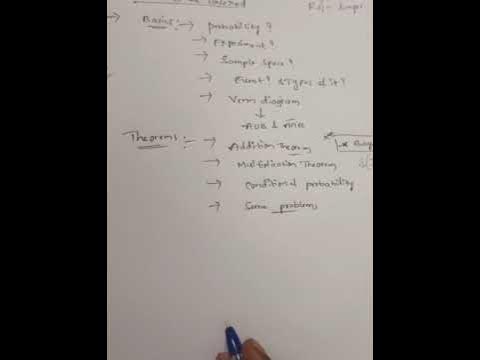 Basics :- → probability ?
→ Experiment ?
→ Sample space ?
→ Event ? & Types of it ?
→ Venn diagram
↓
AUB &
Theorems :- → Addition Theorem
→ Multiplication Theorem
→ Conditional probability
→ Some problems